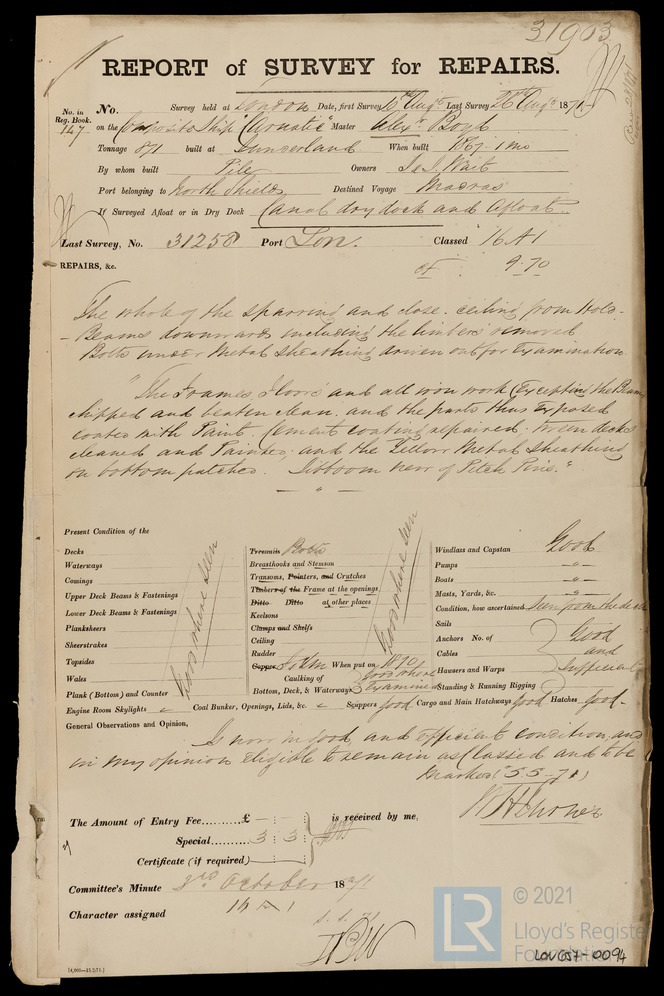 31903
REPORT of SURVEY for REPAIRS.
No. in Reg. Book. 147
No. Survey held at London Date, first Survey 16th Augt Last Survey 26th Augt 1871
on the Composite Ship "Carnatic" Master Alexr Boyd
Tonnage 871 built at Sunderland When built 1867. 1 mo
By whom built Pile Owners J & J. Wait
Port belonging to North Shields Destined Voyage Madras
If Surveyed Afloat or in Dry Dock Canal dry dock and Afloat.
Last Survey, No. 31250 Port Lon. Classed 16 A1
REPAIRS, &c. 9.70
The whole of the sparring and close ceiling from Hold-
-Beams downwards including the limbers removed
Bolts under Metal Sheathing driven out for Examination.
"The Frames, Floors and all iron work (Excepting the Beams
chipped and beaten clean. and the parts thus Exposed
coated with Paint. Cement coating repaired. 'tween decks
cleaned and Painted. and the Yellow Metal Sheathing
on bottom patched. Jibboom new of Pitch Pine."
— " —
Present Condition of the
Decks
Waterways
Comings
Upper Deck Beams & Fastenings
Lower Deck Beams & Fastenings
Planksheers
Sheerstrakes
Topsides
Wales
Plank (Bottom) and Counter
Good where seen
Treenails Bolts
Breasthooks and Stemson
Transoms, Pointers, and Crutches
Timbers of the Frame at the openings
Ditto Ditto at other places
Keelsons
Clamps and Shelfs
Ceiling
Rudder
Copper When put on 1870
Caulking of Bottom, Deck, & Waterways Good where Examined
Good where seen
Windlass and Capstan Good
Pumps -"-
Boats -"-
Masts, Yards, &c. -"-
Condition, how ascertained Seen from the deck
Sails
Anchors No. of
Cables
Hawsers and Warps
Standing & Running Rigging
Good and Sufficient
Engine Room Skylights Coal Bunker, Openings, Lids, &c. Scuppers good Cargo and Main Hatchways good Hatches good.
General Observations and Opinion,
Is now in good and efficient condition, and
in my opinion eligible to remain as Classed and to be
marked (S.S-71)
The Amount of Entry Fee........£ — : — : is received by me,
Special.......... 3 : 3 :
Certificate (if required)
Committee's Minute 3rd October 1871
Character assigned 16 A 1
S.S. 71
© 2021
LR
Lloyd's Register
Foundation
LON657-0094